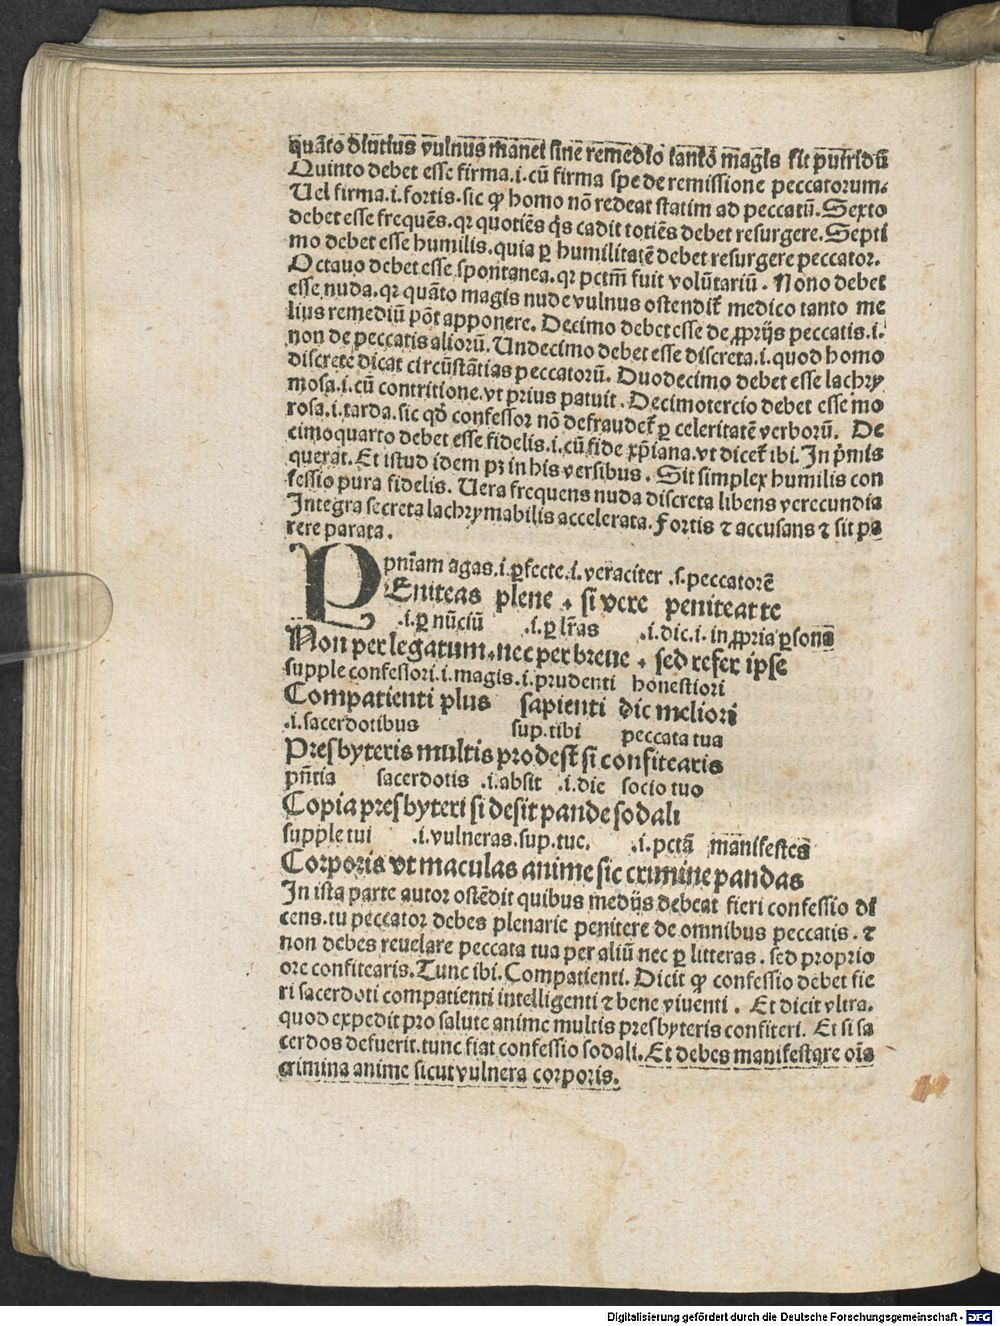 quāto diutius vulnus manet sine remedio tanto magis fit putridū
Quinto debet esse firma.i.cū firma spe de remissione peccatorum.
Uel firma.i.fortis.sic ꝙ homo nō redeat statim ad peccatū.Sexto
debet esse frequēs.qꝛ quotiēs q̄s cadit totiēs debet resurgere.Septi
mo debet esse humilis.quia ꝑ humilitatē debet resurgere peccator.
Octauo debet esse spontanea.qꝛ pctm̄ fuit volūtariū. Nono debet
esse nuda.qꝛ quāto magis nude vulnus ostendit᷑ medico tanto me
lius remediū pōt apponere. Decimo debet esse de ꝓprijs peccatis.i.
non de peccatis aliorū. Undecimo debet esse discreta.i.quod homo
discrete dicat circūstātias peccatorū. Duodecimo debet esse lachry
mosa.i.cū contritione.vt prius patuit. Decimotercio debet esse mo
rosa.i.tarda.sic qđ confessor nō defraudet᷑ ꝑ celeritatē verborū. De
cimoquarto debet esse fidelis.i.cū fide xp̄iana.vt dicet᷑ ibi.In p̄mis
querat. Et istud idem pꝫ in his versibus. Sit simplex humilis con
fessio pura fidelis. Uera frequens nuda discreta libens verecundia
Integra secreta lachrymabilis accelerata. Fortis ⁊ accusans ⁊ sit pa
rere parata.
pn̄iam agas.i.ꝑfecte.i.veraciter .s.peccatorē
PEniteas plene + si vere peniteat te
.i.ꝑ nūciū .i.ꝑ lr̄as .i.dic.i.in ꝓpria ꝑsona
Non per legatum.nec per breue + sed refer ipse
supple confessori.i.magis.i.prudenti honestiori
Compatienti plus sapienti dic meliori
.i.sacerdotibus sup.tibi peccata tua
Presbyteris multis prodest si confitearis
pn̄tia sacerdotis .i.absit .i.dic socio tuo
Copia presbyteri si desit pande sodali
supple tui .i.vulneras.sup.tuc. .i.pctā manifestes
Corporis vt maculas anime sic crimine pandas
In ista parte autor ostēdit quibus medijs debeat fieri confessio di
cens.tu peccator debes plenarie penitere de omnibus peccatis. ⁊
non debes reuelare peccata tua per aliū nec ꝑ litteras. sed proprio
ore confitearis.Tunc ibi.Compatienti. Dicit ꝙ confessio debet fie
ri sacerdoti compatienti intelligenti ⁊ bene viuenti. Et dicit vltra.
quod expedit pro salute anime multis presbyteris confiteri. Et si sa
cerdos defuerit.tunc fiat confessio sodali. Et debes manifestare oīa
crimina anime sicut vulnera corporis.
Digitalisierung gefördert durch die Deutsche Forschungsgemeinschaft - DFG